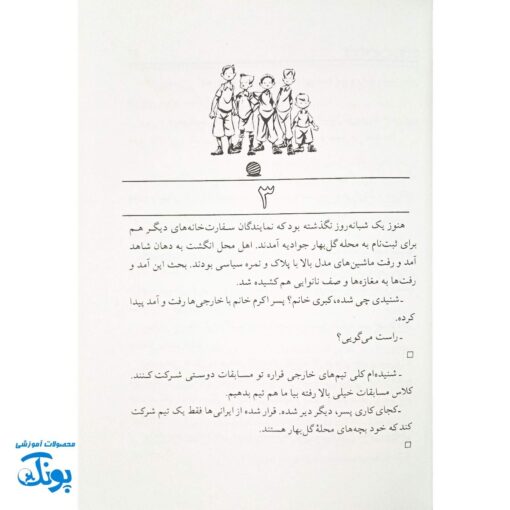 ۳
هنوز یک شبانه‌روز نگذشته بود که نمایندگان سفارت‌خانه‌های دیگر هم
برای ثبت‌نام به محله گل‌بهار جوادیه آمدند. اهل محل انگشت به دهان شاهد
آمد و رفت ماشین‌های مدل بالا با پلاک و نمره سیاسی بودند. بحث این آمد و
رفت‌ها به مغازه‌ها و صف نانوایی هم کشیده شد.
ـ شنیدی چی شده، کبری خانم؟ پسر اکرم خانم با خارجی‌ها رفت و آمد پیدا
کرده.
ـ راست می‌گویی؟
ـ شنیده‌ام کلی تیم‌های خارجی قراره تو مسابقات دوستی شرکت کنند.
کلاس مسابقات خیلی بالا رفته بیا ما هم تیم بدهیم.
ـ کجای کاری پسر، دیگر دیر شده. قرار شده از ایرانی‌ها فقط یک تیم شرکت
کند که خود بچه‌های محلهٔ گل‌بهار هستند.
محصولات آموزشی
پونک